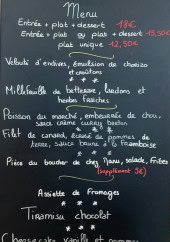 Menu
Entrée + plat + dessert 18€
Entrée + plat ou plat + dessert 15,50€
plat unique 12,50€
Velouté d'endives, émulsion de chorizo
et croûtons
* * *
Millefeuille de betterave, lardons et
herbes fraîches
Poisson du marché, embeurrée de chou,
sauce crème curry breton
* * *
Filet de canard, écrasé de pommes de
terre, sauce brune à la framboise
* * *
Pièce du boucher de chez Manu, salade, frites
(supplément 3€)
Assiette de fromages
* * *
Tiramisu chocolat
* * *
Cheesecake vanille et pommes